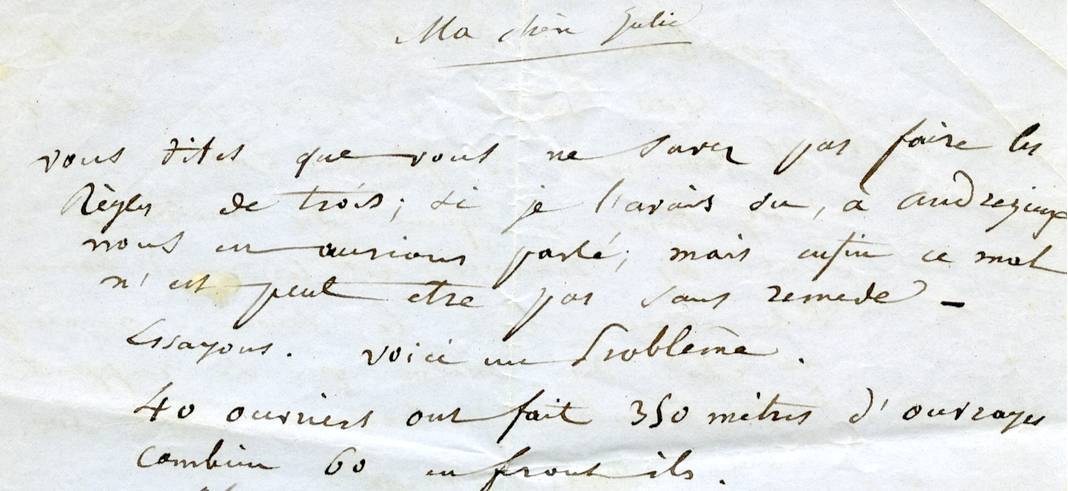 Ma chère Julie
vous dites que vous ne savez pas faire les
Règles de trois; si je l'avais su, à andrezieux
nous en aurions parlé; mais enfin ce mal
n'est peut etre pas sans remede –
Essayons. voici un Problême.
40 ouvriers ont fait 350 mètres d'ouvrages
Combien 60 en feront ils.